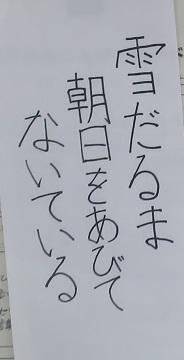 雪だるま
朝日をあびて
ないている